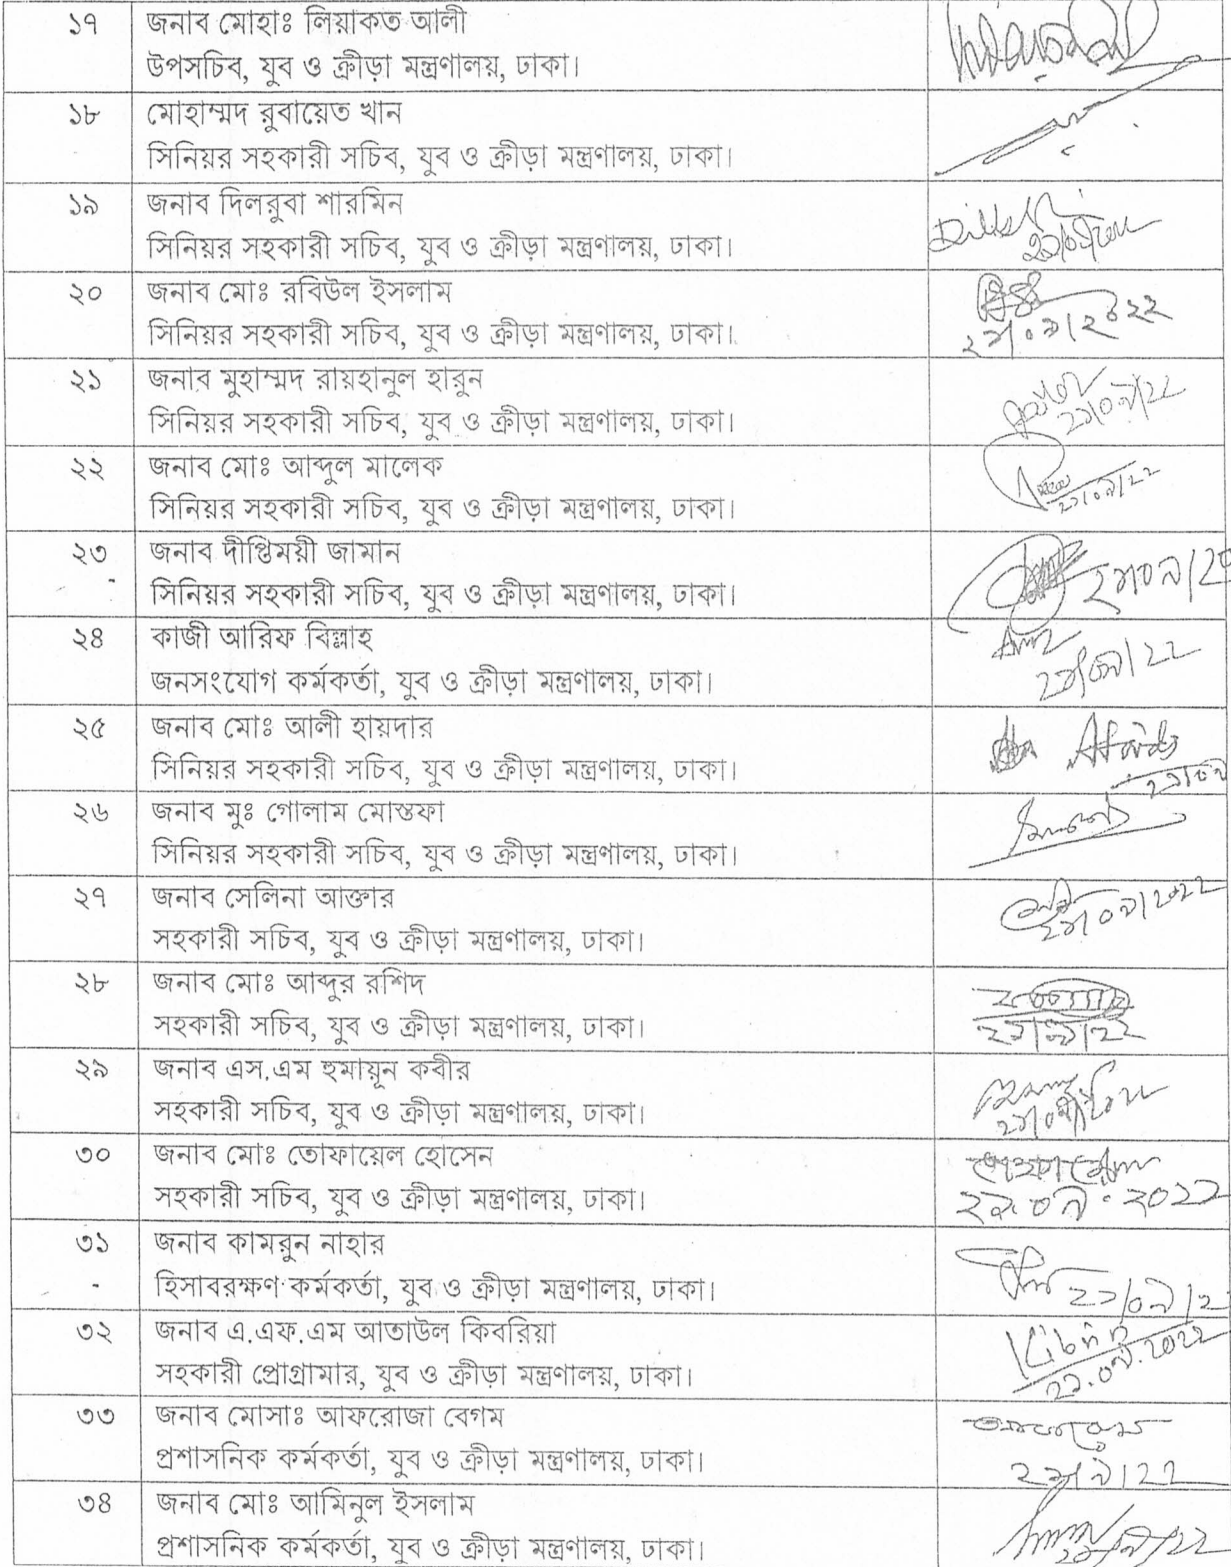 ১৭ জনাব মোহাঃ লিয়াকত আলী
উপসচিব, যুব ও ক্রীড়া মন্ত্রণালয়, ঢাকা।
১৮ মোহাম্মদ রুবায়েত খান
সিনিয়র সহকারী সচিব, যুব ও ক্রীড়া মন্ত্রণালয়, ঢাকা।
১৯ জনাব দিলরুবা শারমিন
সিনিয়র সহকারী সচিব, যুব ও ক্রীড়া মন্ত্রণালয়, ঢাকা।
২০ জনাব মোঃ রবিউল ইসলাম
সিনিয়র সহকারী সচিব, যুব ও ক্রীড়া মন্ত্রণালয়, ঢাকা।
২৯/০৯/২০২২
২১ জনাব মুহাম্মদ রায়হানুল হারুন
সিনিয়র সহকারী সচিব, যুব ও ক্রীড়া মন্ত্রণালয়, ঢাকা।
২৯/০৯/২২
২২ জনাব মোঃ আব্দুল মালেক
সিনিয়র সহকারী সচিব, যুব ও ক্রীড়া মন্ত্রণালয়, ঢাকা।
২৯/০৯/২২
২৩ জনাব দীপ্তিময়ী জামান
সিনিয়র সহকারী সচিব, যুব ও ক্রীড়া মন্ত্রণালয়, ঢাকা।
২৪ কাজী আরিফ বিল্লাহ
জনসংযোগ কর্মকর্তা, যুব ও ক্রীড়া মন্ত্রণালয়, ঢাকা।
২৯/০৯/২২
২৫ জনাব মোঃ আলী হায়দার
সিনিয়র সহকারী সচিব, যুব ও ক্রীড়া মন্ত্রণালয়, ঢাকা।
২৬ জনাব মুঃ গোলাম মোস্তফা
সিনিয়র সহকারী সচিব, যুব ও ক্রীড়া মন্ত্রণালয়, ঢাকা।
২৭ জনাব সেলিনা আক্তার
সহকারী সচিব, যুব ও ক্রীড়া মন্ত্রণালয়, ঢাকা।
২৯/০৯/২০২২
২৮ জনাব মোঃ আব্দুর রশিদ
সহকারী সচিব, যুব ও ক্রীড়া মন্ত্রণালয়, ঢাকা।
২৯/০৯/২২
২৯ জনাব এস.এম হুমায়ূন কবীর
সহকারী সচিব, যুব ও ক্রীড়া মন্ত্রণালয়, ঢাকা।
৩০ জনাব মোঃ তোফায়েল হোসেন
সহকারী সচিব, যুব ও ক্রীড়া মন্ত্রণালয়, ঢাকা।
২৯.০৯.২০২২
৩১ জনাব কামরুন নাহার
হিসাবরক্ষণ কর্মকর্তা, যুব ও ক্রীড়া মন্ত্রণালয়, ঢাকা।
৩২ জনাব এ.এফ.এম আতাউল কিবরিয়া
সহকারী প্রোগ্রামার, যুব ও ক্রীড়া মন্ত্রণালয়, ঢাকা।
২৯.০৯.২০২২
৩৩ জনাব মোসাঃ আফরোজা বেগম
প্রশাসনিক কর্মকর্তা, যুব ও ক্রীড়া মন্ত্রণালয়, ঢাকা।
৩৪ জনাব মোঃ আমিনুল ইসলাম
প্রশাসনিক কর্মকর্তা, যুব ও ক্রীড়া মন্ত্রণালয়, ঢাকা।